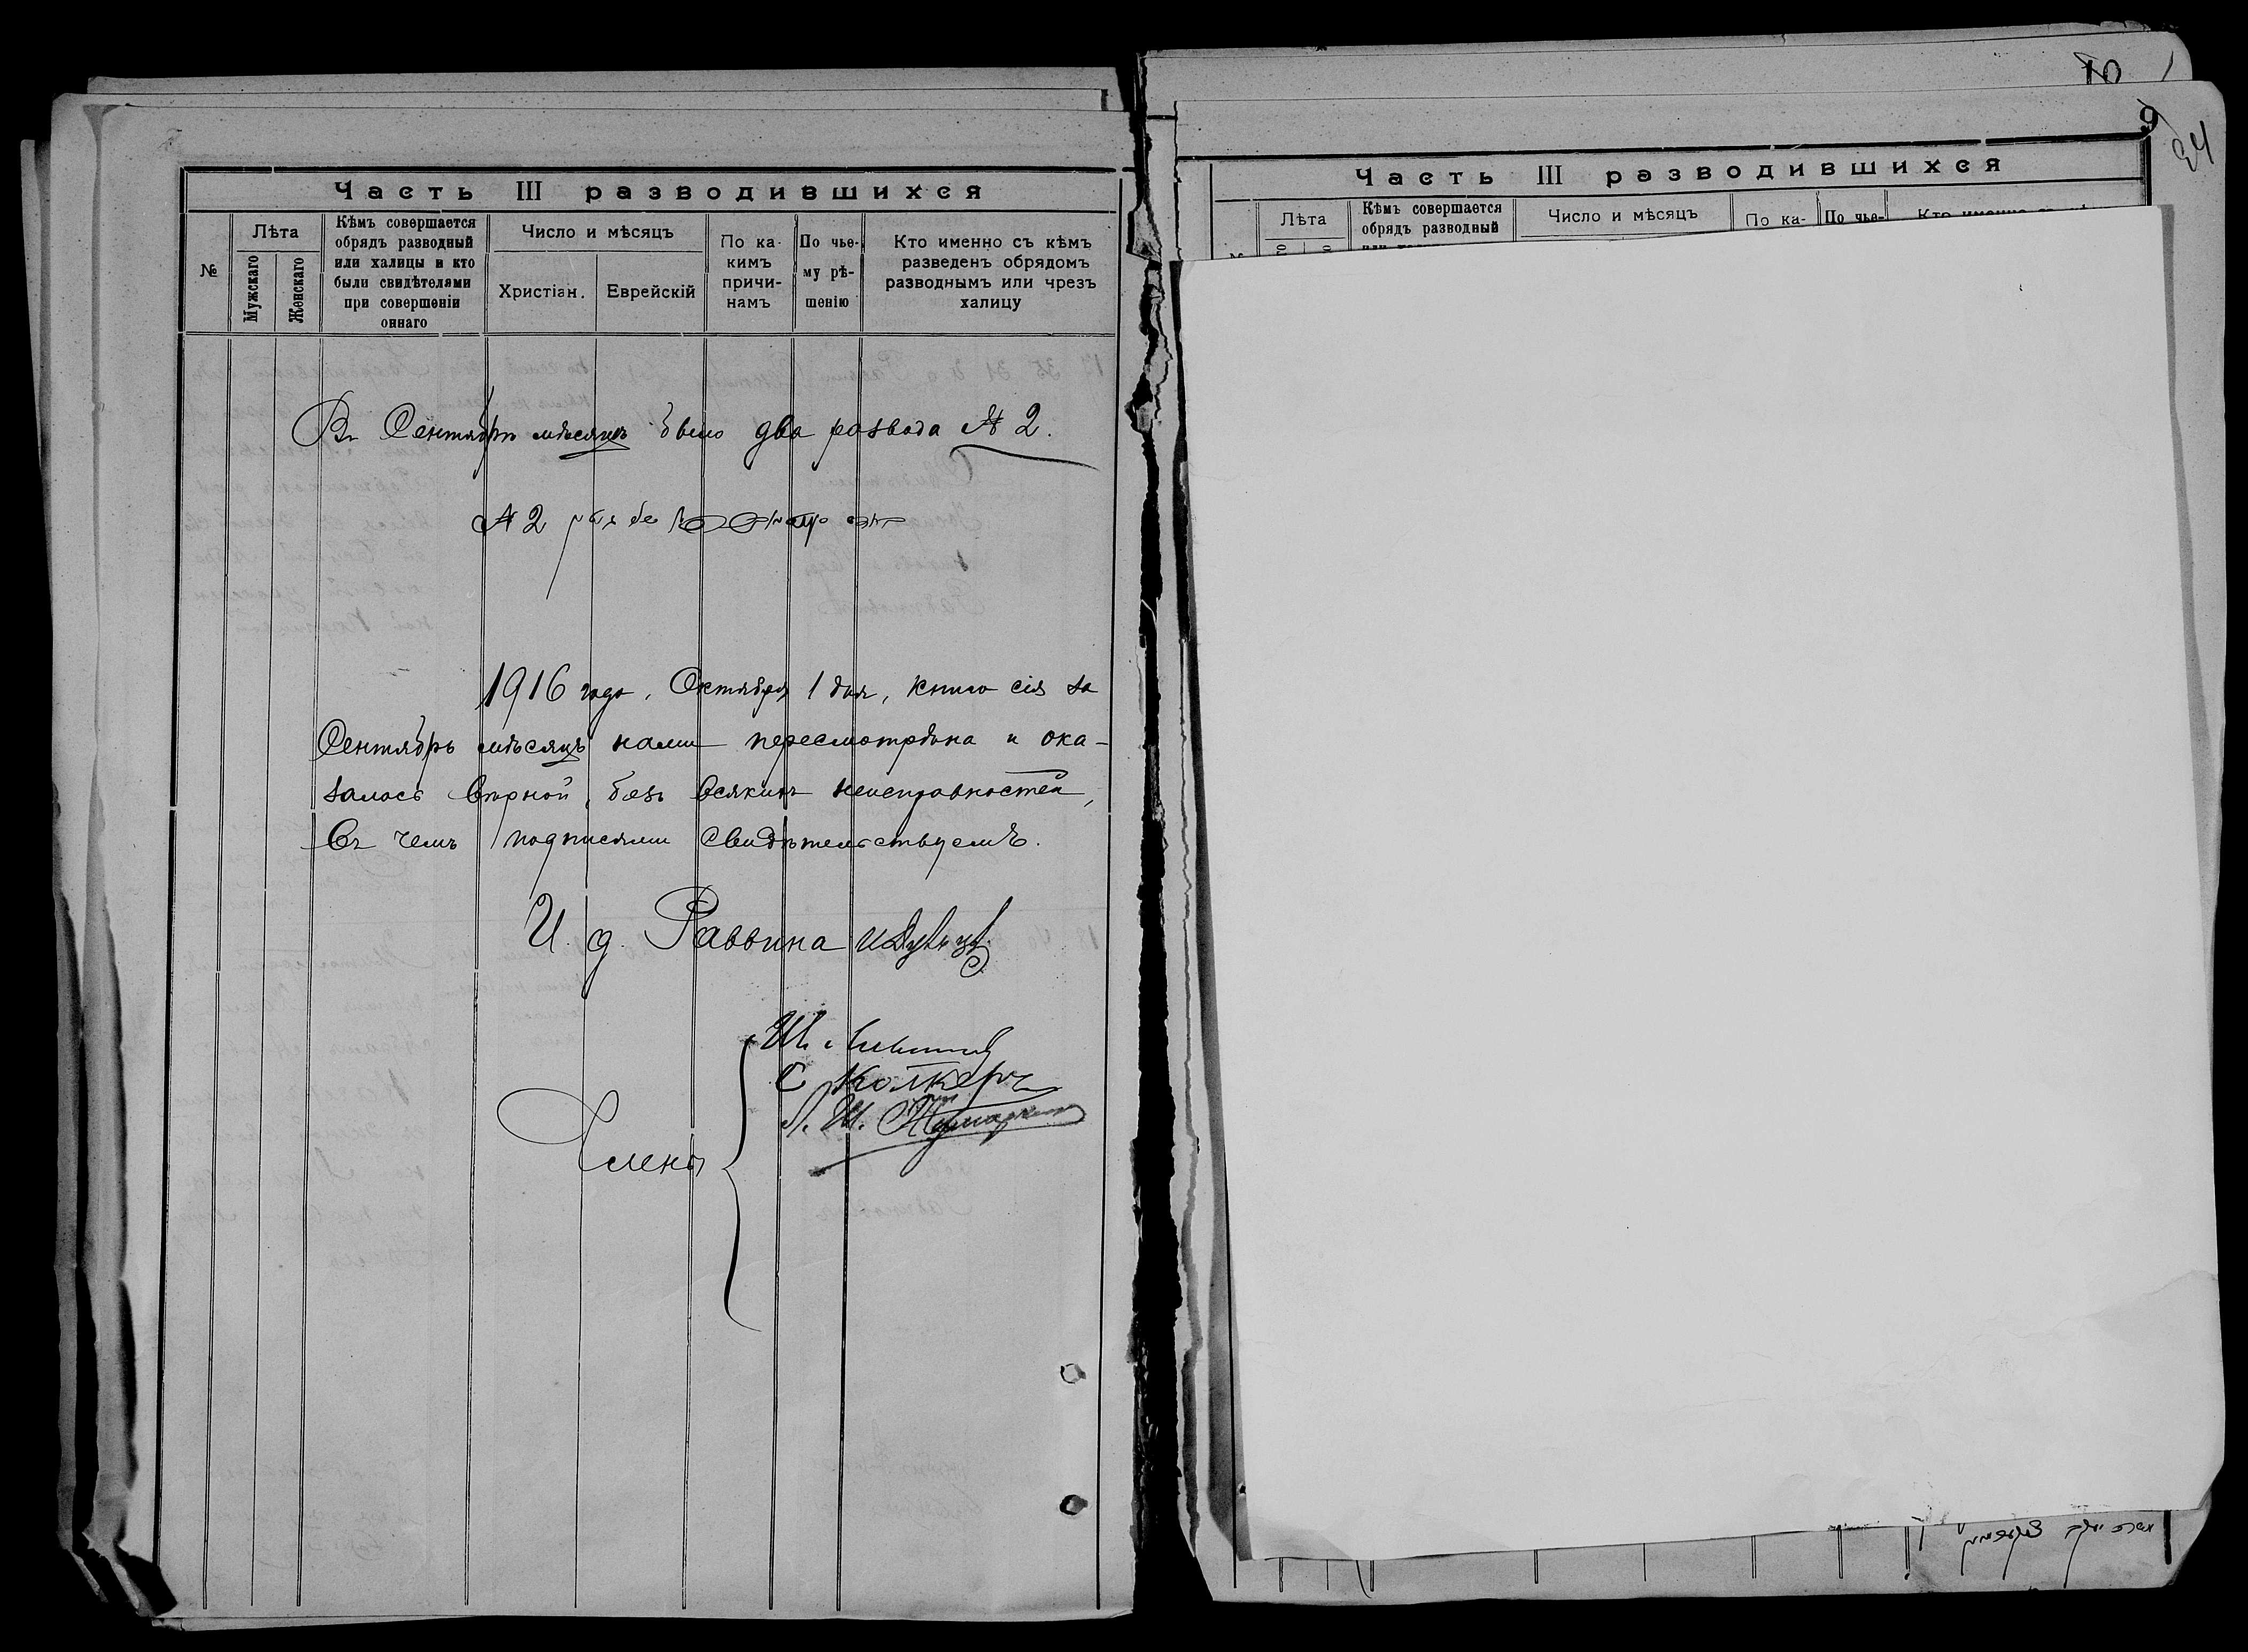 Часть III разводившихся
№
Лѣта
Мужскаго
Женскаго
Кѣмъ совершается
обрядъ разводный
или халицы и кто
были свидѣтелями
при совершеніи
оннаго
Число и мѣсяцъ
Христіан.
Еврейскій
По ка-
кимъ
причи-
намъ
По чье-
му рѣ-
шенію
Кто именно съ кѣмъ
разведенъ обрядомъ
разводнымъ или чрезъ
халицу
Въ Сентябрѣ мѣсяцѣ было два развода № 2.
№ 2
1916 года, Октября 1 дня, книга сія за
Сентябрь мѣсяцъ нами пересмотрѣна и ока-
залась вѣрной, безъ всякихъ неисправностей,
въ чемъ подписями свидѣтельствуемъ.
И. д. Раввина
Члены
Ш.
С Колкеръ
Ш.
10
9
34
Часть III разводившихся
Лѣта
Кѣмъ совершается
обрядъ разводный
Число и мѣсяцъ
По ка-
По чье-